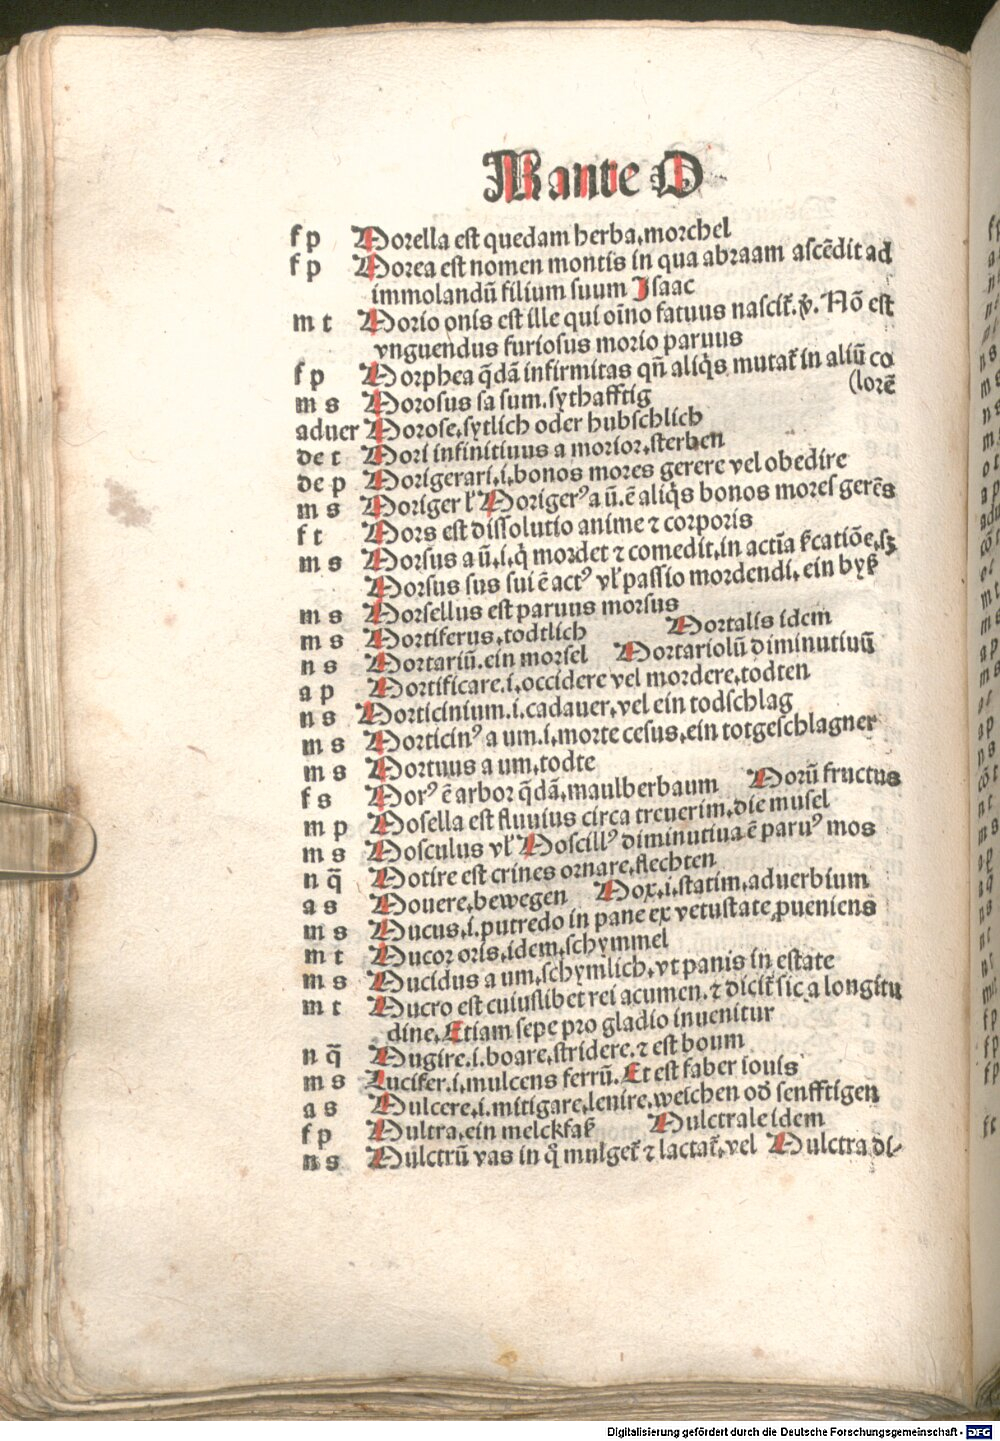 M ante O
f p Morella est quedam herba.morchel
f p Morea est nomen montis in qua abraam ascēdit ad
immolandū filium suum Isaac
m t Morio onis est ille qui oīno fatuus nascit᷑. Nō est
vnguendus furiosus morio paruus
f p Morphea q̄dā infirmitas qn̄ aliq̇s mutat᷑ in aliū co
(lorē
m s Morosus sa sum.sythafftig
aduer Morose.sytlich oder hubschlich
de t Mori infinitiuus a morior.sterben
de p Morigerari.i.bonos mores gerere vel obedire
m s Moriger ł Morigerꝰ a ū.ē aliq̇s bonos mores gerēs
f t Mors est dissolutio anime ⁊ corporis
m s Morsus a ū.i.q̇ mordet ⁊ comedit.in actīa s̄catiōe.sꝫ
Morsus sus sui ē actꝰ vł passio mordendi.ein byß
m s Morsellus est paruus morsus
m s Mortiferus.todtlich Mortalis idem
n s Mortariū.ein morsel Mortariolū diminutiuū
a p Mortificare.i.occidere vel mordere.todten
n s Morticinium.i.cadauer.vel ein todschlag
m s Morticinꝰ a um.i.morte cesus.ein totgeschlagner
m s Mortuus a um.todte
f s Morꝰ ē arbor q̄dā.maulberbaum Morū fructus
m p Mosella est fluuius circa treuerim.die musel
m s Mosculus vł Moscillꝰ diminutiua ē paruꝰ mos
n q̄ Motire est crines ornare.flechten
a s Mouere.bewegen Mox.i.statim.aduerbium
m s Mucus.i.putredo in pane ex vetustate ꝓueniens
m t Mucor oris.idem.schymmel
m s Mucidus a um.schymlich.vt panis in estate
m t Mucro est cuiuslibet rei acumen.⁊ dicit᷑ sic a longitu
dine.Etiam sepe pro gladio inuenitur
n q̄ Mugire.i.boare.stridere.⁊ est boum
m s Lucifer.i.mulcens ferrū.Et est faber iouis
a s Mulcere.i.mitigare.lenire.weichen od̓ senfftigen
f p Multra.ein melckfaß Mulctrale idem
n s Mulctrū vas in q̊ mulget᷑ ⁊ lactat᷑.vel Mulctra di-
Digitalisierung gefördert durch die Deutsche Forschungsgemeinschaft - DFG